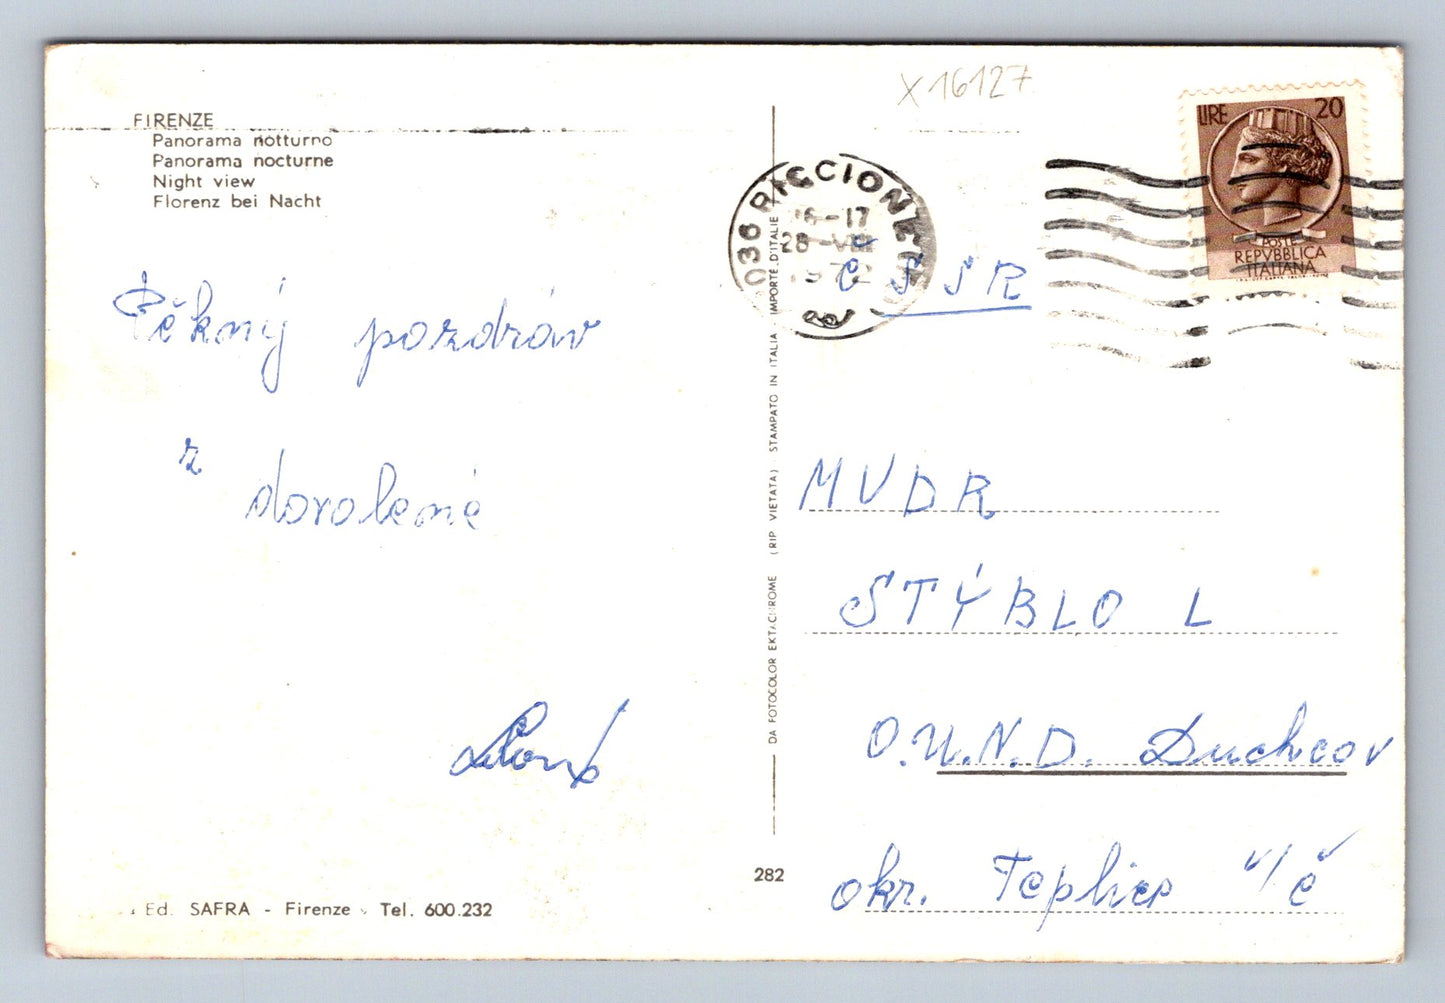 X16127
FIRENZE
Panorama notturno
Panorama nocturne
Night view
Florenz bei Nacht
Pěkný pozdrav
z dovolené
Ed. SAFRA - Firenze - Tel. 600.232
DA FOTOCOLOR EKTACHROME (RIP VIETATA) STAMPATO IN ITALIA IMPORTÉ D'ITALIE
282
036 RICCIONE
16-17
28-VIII
1972
LIRE 20
POSTE
REPVBBLICA
ITALIANA
ČSSR
MVDR
STÝBLO L
O.U.N.D. Duchcov
okr. Teplice v/č